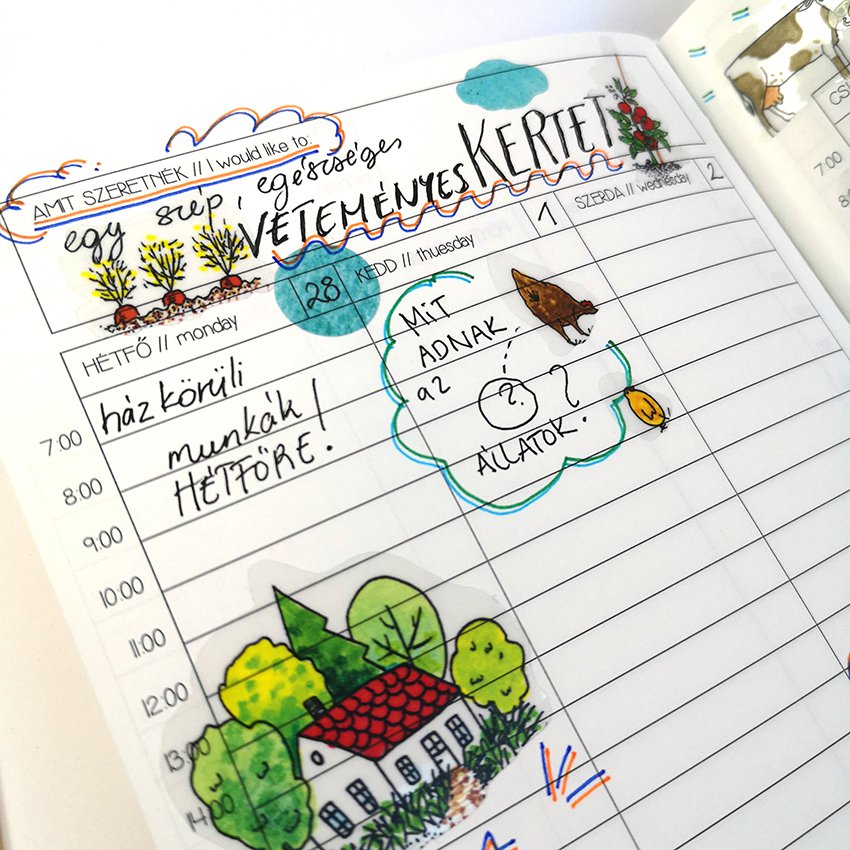 AMIT SZERETNÉK // I would like to:
egy szép, egészséges
VETEMÉNYES KERTET
HÉTFŐ // monday 28
KEDD // thuesday 1
SZERDA // wednesday 2
ház körüli
munkák!
HÉTFŐRE!
MIT
ADNAK
az ? ?
ÁLLATOK.
7:00
8:00
9:00
10:00
11:00
12:00
13:00
14:00
CSÜ
7:00